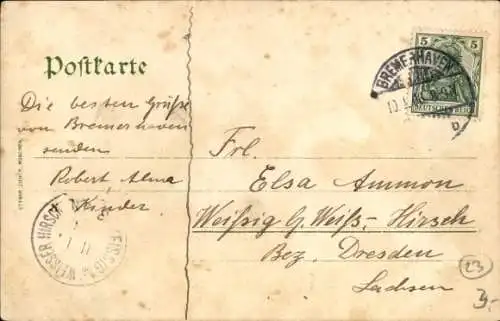 Postkarte
Die besten Grüße
von Bremerhaven
senden
Robert, Alma
Kinder
5 5
BREMERHAVEN
DEUTSCHES REICH
b
Frl.
Elsa Ammon
Weißig b/ Weiß-Hirsch
Bez. Dresden
Sachsen
WEISSER HIRSCH
23
3,-